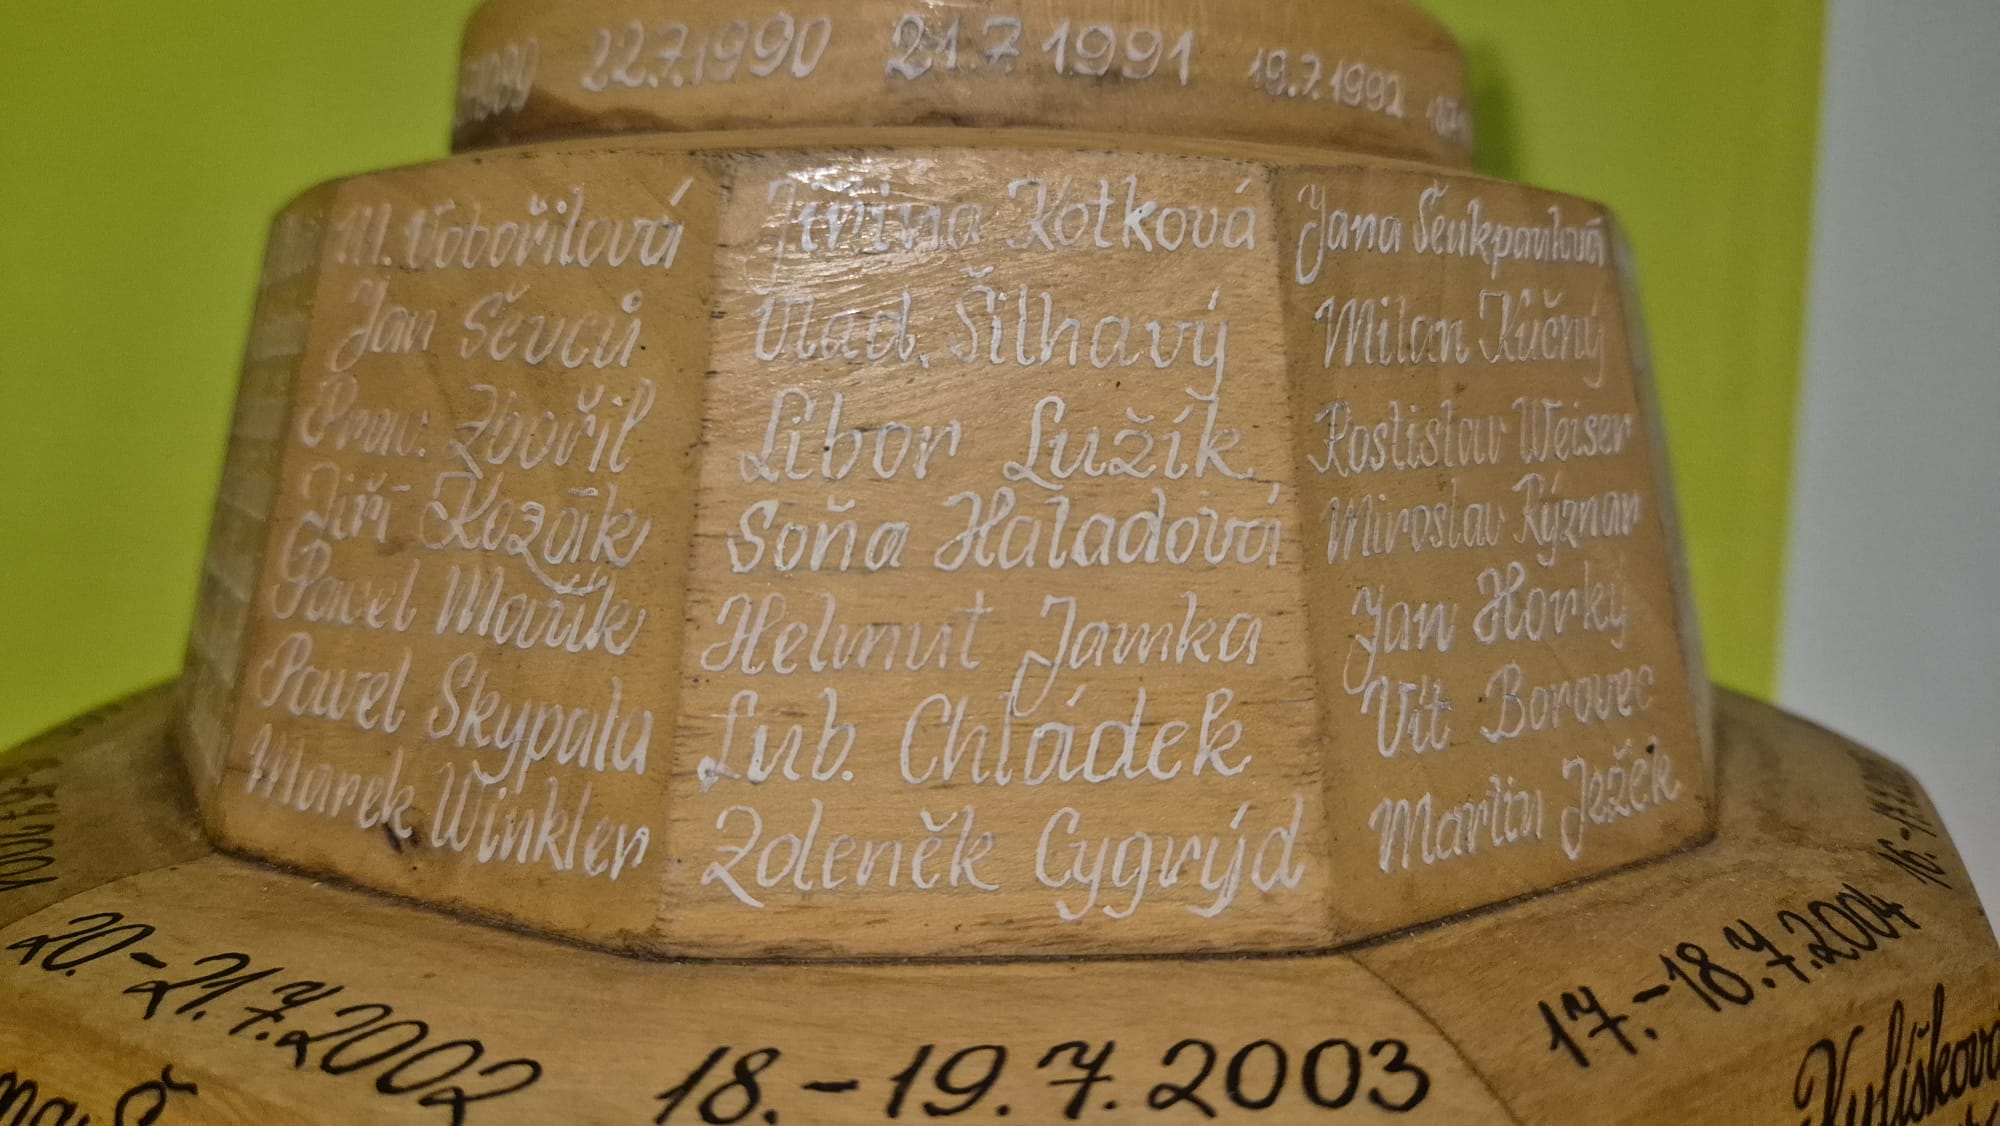 22.7.1990
21.7.1991
19.7.1992
M. Vobořilová
Jan Ševců
Prav. Zbořil
Jiří Kozák
Pavel Mařík
Pavel Skypala
Marek Winkler
Jiřina Kotková
Vlad. Šilhavý
Libor Lužík
Soňa Haladová
Helmut Jamka
Lub. Chládek
Zdeněk Cygrýd
Jana
Milan Kučný
Rostislav Weiser
Miroslav Rýznar
Jan Horký
Vít Borovec
Martin Ježek
20.-21.7.2002
18.-19.7.2003
17.-18.7.2004